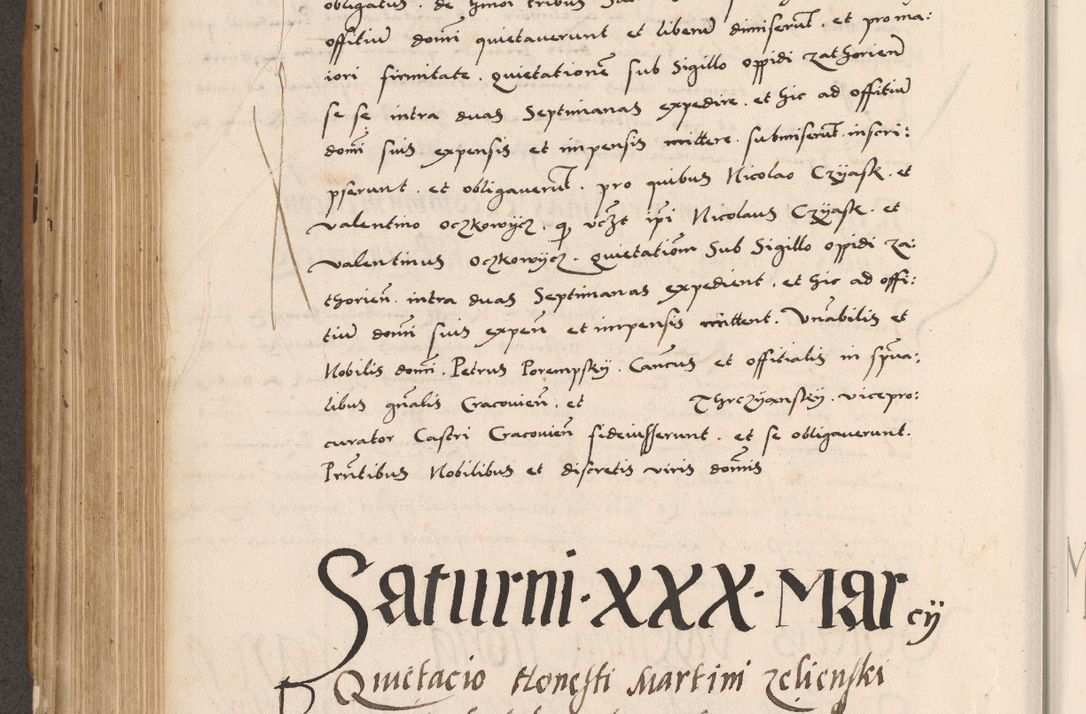 obligatus . de hmoi tribus
offitiū domi quietaverunt et liberū dimiserūt . et pro ma:
iori firmitate . quietationē sub Sigillo oppidi zathorieñ
se se intra duas Septimanas expedire . et hic ad offitiū
domi suis expensis et impensis mittere . submiserūt . inscri:
pserunt . et obligaverūt . pro quibus Nicolao Czÿask . et
valentino oczkowÿcz . ꝙ vczt ipi Nicolaus Czÿask . et
valentinus oczkowÿcz . quietationī Sub Sigillo oppidi za:
thorieñ . intra duas Septimanas expedient . et hic ad offi:
tiū domi suis expeñ et impensis mittent . Vnabilis et
Nobilis domi . Petrus Porempskÿ . Cancus et offitialis in spua:
libus gnalis Cracovieñ . et Thrczÿanskÿ . vicepro:
curator Castri Cracovieñ fideiusserunt . et se obligaverunt .
Prntibus Nobilibus et discretis viris domis
Saturni · XXX · Marcÿ
Quietacio Honesti Martini zelienski